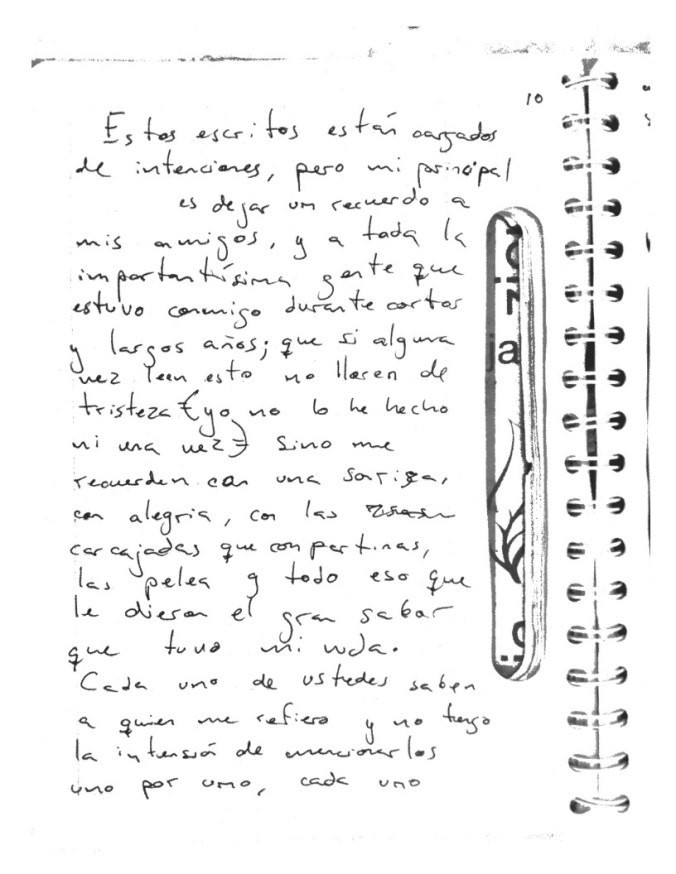 10
Estos escritos están cargados
de intenciones, pero mi principal
es dejar un recuerdo a
mis amigos, y a toda la
importantísima gente que
estuvo conmigo durante cortos
y largos años; que si alguna
vez leen esto no lloren de
tristeza (yo no lo he hecho
ni una vez) sino me
recuerden con una sonrisa,
con alegria, con las
carcajadas que compartimos,
las pelea y todo eso que
le dieron el gran sabor
que tuvo mi vida.
Cada uno de ustedes saben
a quien me refiero y no tengo
la intensión de mencionarlos
uno por uno, cada uno
zio
ja